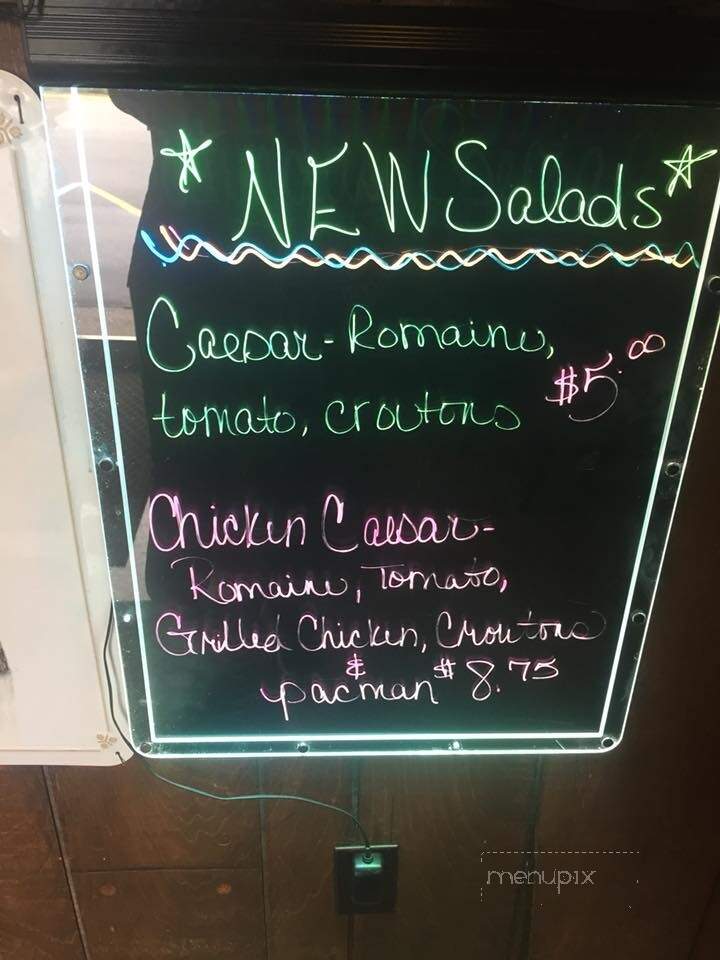 * NEW Salads *
Caesar - Romaine, $5.00
tomato, croutons
Chicken Caesar -
Romaine, Tomato,
Grilled Chicken, Croutons
&
pacman $8.75
menupix